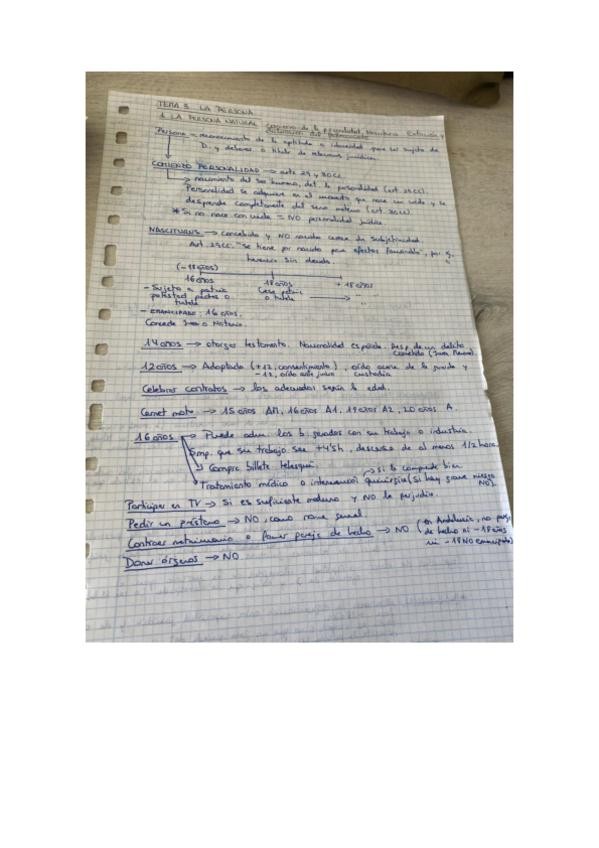 TEMA 3. LA PERSONA
1. LA PERSONA NATURAL. Comienzo de la personalidad, Nasciturus. Extinción y
Persona = reconocimiento de la aptitud o idoneidad para ser sujeto de
D. y deberes o titular de relaciones jurídicas.
COMIENZO PERSONALIDAD → arts 29 y 30 CC
→ nacimiento del ser humano, det. la personalidad (art. 29 CC).
Personalidad se adquiere en el momento que nace con vida y se
desprende completamente del seno materno (art 30 CC).
* Si no nace con vida = NO personalidad jurídica
NASCITURUS → concebido y NO nacido carece de subjetividad.
Art. 29 CC. "se tiene por nacido para efectos favorables", por ej.
herencia sin deuda.
(-18 años)
16 años 18 años +18 años
- Sujeto a patria potestad padres o tutela
Cesa patria o tutela → ...
- EMANCIPADO: 16 años.
Concede Juez o Notario.
14 años → otorgar testamento. Nacionalidad española. Resp. de un delito
cometido (Juez Menores).
12 años → Adoptado (+12, consentimiento), oído acerca de la guarda y
-12, oído ante juicio custodia
Celebrar contratos → los adecuados según la edad.
Carnet moto → 15 años AM, 16 años A1, 19 años A2, 20 años A.
16 años → Puede adm. los b. ganados con su trabajo o industria.
Smp. que su trabajo sea +4'5h, descanso de al menos 1/2 hora
Compra billete
→ si lo comprende bien
Tratamiento médico o intervención quirúrgica (si hay grave riesgo
NO).
Participar en TV → Si es suficiente maduro y NO le perjudica.
Pedir un préstamo → NO, como norma general
Contraer matrimonio o formar pareja de hecho → NO (en Andalucía, no pareja
de hecho ni -18 años
ni -18 NO emancipado)
Donar órganos → NO